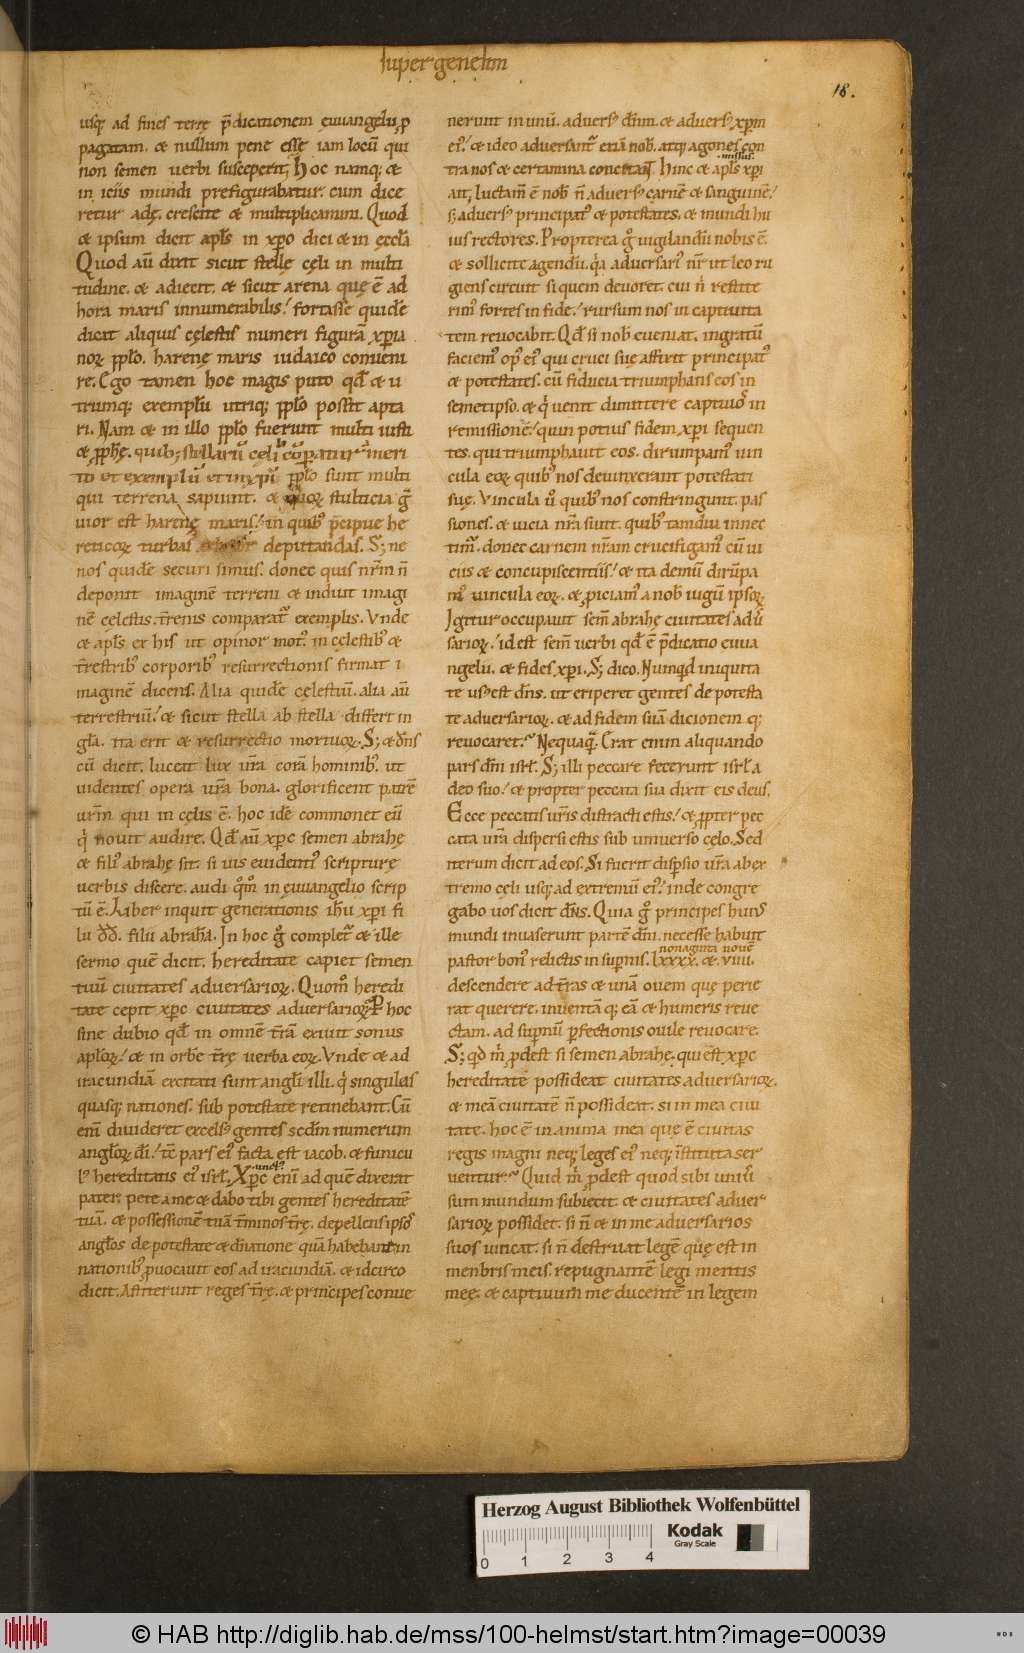 super genesim
18.
usq; ad fines terrę p̄dicationem ęuuangelii, ꝓ
pagatam. & nullum pene esse iam locū qui
non semen uerbi susceperit; Hoc namq; &
in iciis mundi prefigurabatur. cum dice
retur adę. crescite & multiplicamini. Quod
& ipsum dicit apl̄s in xp̄o dici & in ęccl̄a
Quod aū dixit sicut stellę cęli in multi
tudine. & adiecit. & sicut arena quę ē ad
hora maris innumerabilis! fortasse quidē
dicat aliquis cęlestis numeri figurā xp̄ia
noꝝ ppl̄o. harenę maris iudaico conueni
re. Ego tamen hoc magis puto qd̄ & u
trumq; exemplū utriq; ppl̄o possit apta
ri. Nam & in illo ppl̄o fuerunt multi iusti
& ꝓph̄ę. quib; stellarū cęli cōparatur meri
to et exemplū et in xp̄i ppl̄o sunt multi
qui terrena sapiunt. & quoꝝ stulticia ḡ
uior est harenę maris! in quib; p̄cipue he
reticoꝝ turbas deputandas. S; ne
nos quidē securi simus. donec quis nr̄m n̄
deponit imaginē terreni & induit imagi
nē cęlestis. t̄renis comparat᷒ exemplis. Vnde
& apl̄s ex his ut opinor mot᷒ in cęlestib; &
t̄restrib; corporib; resurrectionis firmat i
maginē dicens. Alia quidē cęlestiū. alia aū
terrestriū! & sicut stella ab stella differt in
gl̄a. ita erit & resurrectio mortuoꝝ. S; & dn̄s
cū dicit. luceat lux ur̄a corā hominib;. ut
uidentes opera ur̄a bona. glorificent patrē
ur̄m qui in cęlis ē. hoc idē commonet eū
q̇ nouit audire. Qd̄ aū xp̄c semen abrahę
& fili᷒ abrahę sit. si uis euidenti᷒ scripturę
uerbis discere. audi q̄m̊ in ęuuangelio scrip
tū ē. Liber inquit generationis ih̄u xp̄i fi
lii dd̄. filii abrahā. In hoc g̊ complet᷒ & ille
sermo quē dicit. hereditate capiet semen
tuū ciuitates aduersarioꝝ. Quom̊ heredi
tate cepit xp̄c ciuitates aduersarioꝝ? P hoc
sine dubio qd̄ in omnē t̄rā exiuit sonus
aploꝝ! & in orbē t̄rę uerba eoꝝ. Vnde & ad
iracundiā excitati sunt angl̄i illi. q̇ singulas
quasq; nationes. sub potestate retinebant. Cū
enī diuideret excels᷒ gentes scdm̄ numerum
angl̄oꝝ dī! tē pars ei᷒ facta est iacob. & funicu
l᷒ hereditatis ei᷒ isrl̄. Xp̄c enī ad quē dixerat
pater. pete a me & dabo tibi gentes hereditatē
tuā. & possessionē tuā t̄minos t̄rę. depellens ipsos
angl̄os de potestate & dn̄atione quā habebant in
nationib; ꝓuocauit eos ad iracundiā. & idcirco
dicit. Astiterunt reges t̄rę. & principes conue
nerunt in unū. aduers᷒ dn̄m. & aduers᷒ xp̄m
ei᷒! & ideo aduersant᷒ etiā nob̄. atq; agones con
tra nos & certamina concitant. Hinc & apl̄s xp̄i
ait. luctam̄ ē nob̄ n̄ aduers᷒ carnē & sanguinē!
s; aduers᷒ principat᷒ & potestates. & mundi hu
ius rectores. Propterea g̊ uigilandū nobis ē.
& sollicite agendū. q̇a aduersari᷒ nr̄ ut leo ru
giens circuit si quem deuoret. cui n̊ restite
rim᷒ fortes in fide! rursum nos in captiuita
tem reuocabit. Qd̄ si nob̄ eueniat. ingratū
faciem᷒ op᷒ ei᷒ qui cruci suę affixit principat᷒
& potestates. cū fiducia triumphans eos in
semetipso. & q̇ uenit dimittere captiuos in
remissionē! quin potius fidem xp̄i sequen
tes. qui triumphauit eos. dirumpam᷒ uin
cula eoꝝ quib; nos deuinxerant potestati
suę. Vincula ū quib; nos constringunt. pas
siones. & uicia nr̄a sunt. quib; tamdiu innec
tim᷒. donec carnem nr̄am crucifigam᷒ cū ui
ciis & concupiscentiis! & ita demū dirūpa
m᷒ uincula eoꝝ. & ꝓiciam᷒ a nob̄ iugū ipsoꝝ.
Igitur occupauit sem̄ abrahę ciuitates adū
sarioꝝ! id est sem̄ uerbi qd̄ ē p̄dicatio euua
ngelii. & fides xp̄i. S; dico. Nunqd̄ iniquita
te us᷒ est dn̄s. ut eriperet gentes de potesta
te aduersarioꝝ. & ad fidem suā dicionem q;
reuocaret? Nequaq̄. Erat enim aliquando
pars dn̄i isrl̄. S; illi peccare fecerunt isrl̄ a
deo suo! & propter peccata sua dixit eis deus.
Ecce peccatis ur̄is distracti estis! & ꝓpter pec
cata ur̄a dispersi estis sub uniuerso cęlo. Sed
iterum dicit ad eos. Si fuerit disp̄sio ur̄a ab ex
tremo cęli usq; ad extremū ei᷒! inde congre
gabo uos dicit dn̄s. Quia g̊ principes huius
mundi inuaserunt partē dn̄i. necesse habuit
nonaginta nouē
pastor bon᷒ relictis in supnis. lxxxx. &. viiii.
descendere ad t̄ras & unā ouem quę perie
rat querere. inuentā q; eā & humeris reue
ctam. ad supnū pfectionis ouile reuocare.
S; qd̄ m̊ ꝓdest si semen abrahę. qui est xp̄c
hereditate possideat ciuitates aduersarioꝝ.
& meā ciuitatē n̄ possideat. si in mea ciui
tate. hoc ē in anima mea quę ē ciuitas
regis magni neq; leges ei᷒ neq; īstituta ser
uentur? Quid m̊ ꝓdest quod sibi uniū
sum mundum subiecit. & ciuitates aduer
sarioꝝ possidet. si n̄ & in me aduersarios
suos uincat. si n̄ destruat legē quę est in
menbris meis. repugnantē legi mentis
meę. & captiuum me ducentē in legem
Herzog August Bibliothek Wolfenbüttel
Kodak
Gray Scale
0 1 2 3 4
© HAB http://diglib.hab.de/mss/100-helmst/start.htm?image=00039
HAB